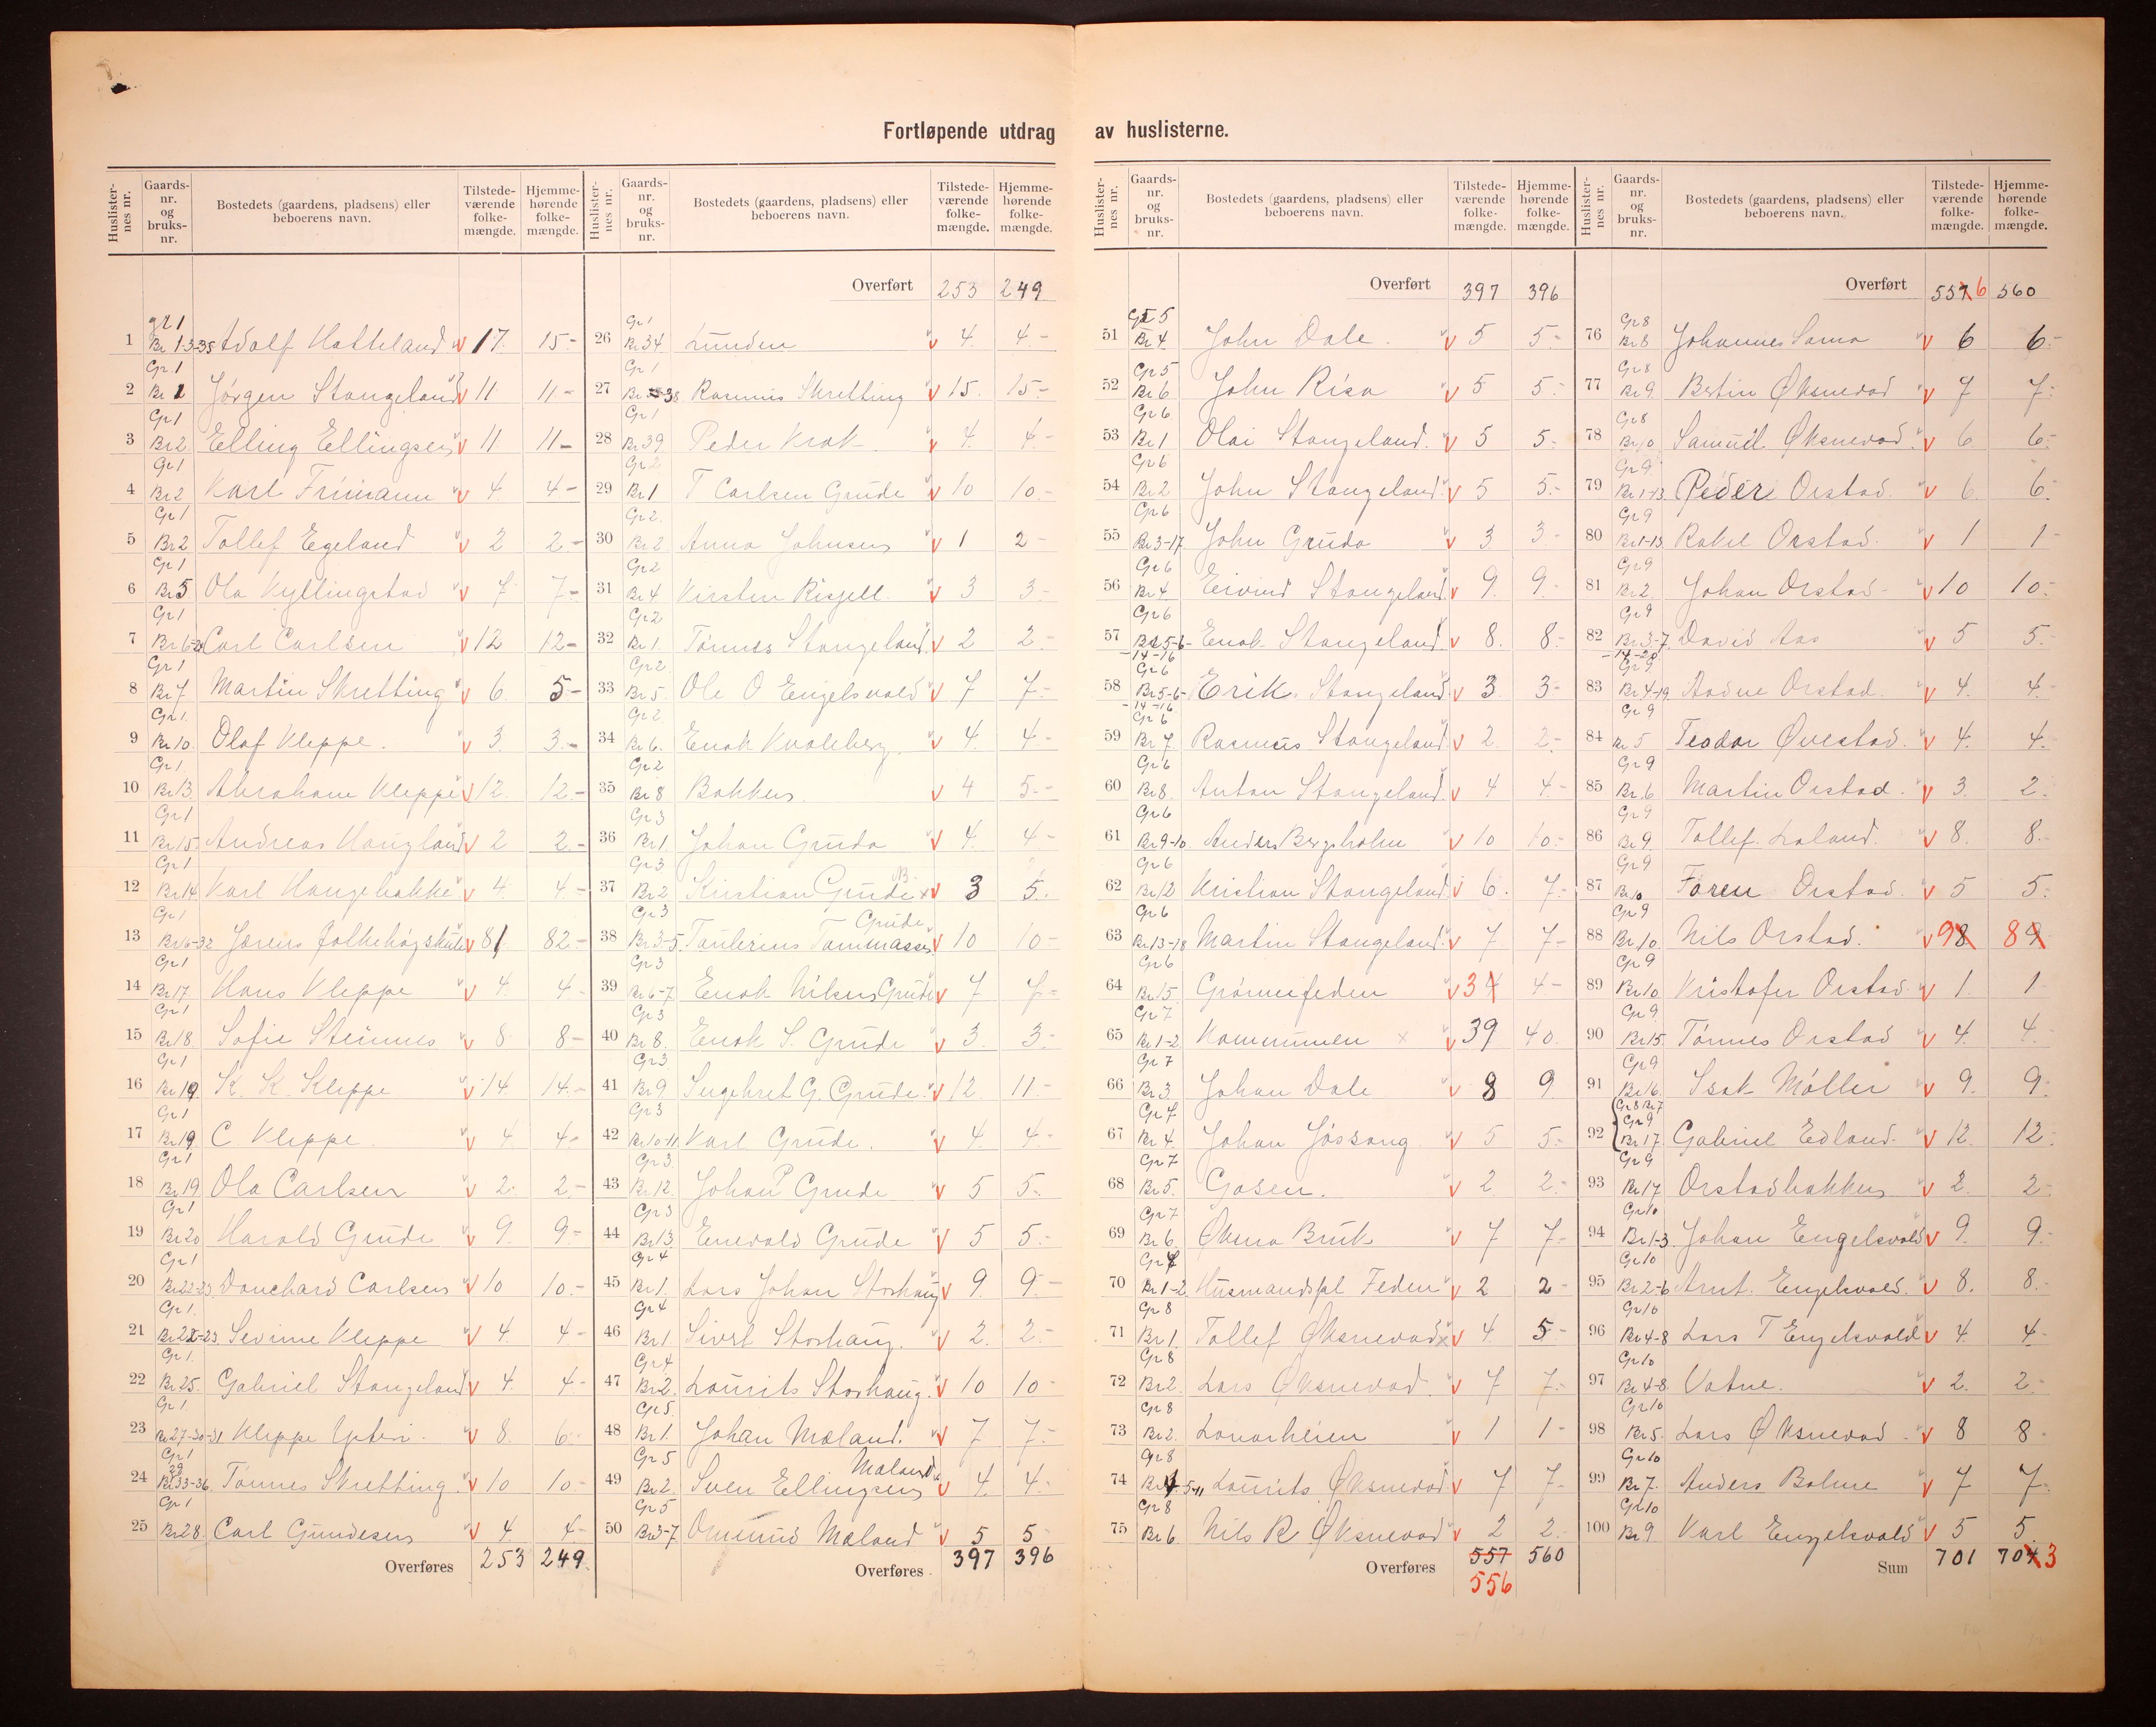 Fortløpende utdrag av huslisterne.
Huslisternes nr. Gaards-nr. og bruks-nr. Bostedets (gaardens, pladsens) eller beboerens navn. Tilstedeværende folkemængde. Hjemmehørende folkemængde.
1 Gr 1 Br 1-3-35 Adolf Hatteland 17. 15.-
2 Gr. 1 Br 1 Jørgen Stangeland 11 11-
3 Gr 1 Br 2 Elling Ellingsen 11 11-
4 Gr 1 Br 2 Karl Frimann 4 4-
5 Gr 1 Br 2 Tollef Egeland 2 2.-
6 Gr 1 Br 5 Ola Kyllingstad 7 7-
7 Gr 1 Carl Carlsen 12 12-
8 Gr 1 Br 7 Martin Skretting 6. 5-
9 Gr 1. Br 10. Olaf Kleppe. 3. 3.-
10 Gr 1. Br 13. Abraham Kleppe 12. 12.-
11 Gr 1 Br 15. Andreas Haugland 2 2.-
12 Gr 1 Br 14 Karl Haugebakke 4. 4.-
13 Gr 1 Br 16-32 Jærens folkehøgskule 81 82-
14 Gr 1 Br 17. Hans Kleppe 4 4-
15 Gr 1 Br 18. Sofie Steinnes 8 8-
16 Gr 1 Br 19. K. K. Kleppe 14 14.-
17 Gr 1 Br 19. C. Kleppe. 4 4-
18 Gr 1 Br 19 Ola Carlsen 2. 2.-
19 Gr 1 Br 20 Harald Grude 9. 9-
20 Gr 1 Br 22-23 Danchard Carlsen 10 10.-
21 Gr 1. Br 22-23. Sevrine Kleppe 4. 4-
22 Gr 1. Br 25. Gabriel Stangeland 4. 4-
23 Gr 1 Br 27-30-31 Kleppe 8. 6-
24 Gr 1 29 Br 33-36 Tønnes Skretting 10 10.-
25 Gr 1 Br 28. Carl Gundesen 4 4-
Overføres 253 249.
Huslisternes nr. Gaards-nr. og bruks-nr. Bostedets (gaardens, pladsens) eller beboerens navn. Tilstedeværende folkemængde. Hjemmehørende folkemængde.
Overført 253 249
26 Gr 1 Br 34 Lunden 4. 4-
27 Gr 1 Rasmus Skretting 15. 15.-
28 Gr 1 Br 39. Peder Krak 4. 4-
29 Gr 2 Br 1 T Carlsen Grude 10 10.-
30 Gr 2. Br 2 Anna Johnsen 1 2-
31 Gr 2 Br 4 Kirsten Risjell. 3 3-
32 Gr 2 Br 1. Tønnes Stangeland. 2 2-
33 Gr 2 Br 5. Ole O Engelsvold 7 7-
34 Gr 2 Br 6. Enok Kvaleberg. 4. 4-
35 Gr 2 Br 8 Bakken. 4 5.-
36 Gr 3 Br 1. Johan Gruda 4. 4-
37 Gr 3 Br 2 Kristian Grude NB x 3 5.
38 Gr 3 Br 3-5. Taulerius Tommassen Grude 10 10-
39 Gr 3 Br 6-7 Enok Nilsen Grude 7 7-
40 Gr 3 Br 8. Enok S. Grude 3. 3.-
41 Gr 3. Br 9 Ingebret G. Grude. 12. 11.-
42 Gr 3 Br 10-11. Karl Grude. 4. 4-
43 Gr 3. Br 12. Johan P Grude 5 5.-
44 Gr 3 Br 13 Enevald Grude 5 5.-
45 Gr 4 Br 1. Lars Johan Storhaug 9. 9.-
46 Gr 4 Br 1 Sivert Storhaug. 2. 2.-
47 Gr 4 Br 2. Laurits Storhaug. 10 10-
48 Gr 5. Br 1. Johan Mæland. 7 7.-
49 Gr 5 Br 2. Sven Ellingsen Mæland 4. 4.-
50 Gr 5 Br 3-7. Ommund Mæland 5 5
Overføres 397 396
Huslisternes nr. Gaards-nr. og bruks-nr. Bostedets (gaardens, pladsens) eller beboerens navn. Tilstedeværende folkemængde. Hjemmehørende folkemængde.
Overført 397 396
51 Gr 5 Br 4. John Dale. 5 5.-
52 Gr 5 Br 6 John Risa 5 5.-
53 Gr 6. Br 1 Olai Stangeland. 5 5-
54 Gr 6 Br 2 John Stangeland. 5 5.-
55 Gr 6 Br 3-17. John Gruda 3 3.-
56 Gr 6 Br 4. Eivind Stangeland. 9. 9.-
57 Gr 6 Br 5-6-14-16 Enok Stangeland 8. 8.-
58 Gr 6 Br 5-6-14-16 Erik. Stangeland 3. 3-
59 Gr 6 Br 7. Rasmus Stangeland 2. 2.-
60 Gr 6 Br 8. Anton Stangeland. 4 4.-
61 Gr 6 Br 9-10. Anders Bergsholm 10 10.-
62 Gr 6 Br 12 Kristian Stangeland. 6. 7.-
63 Gr 6 Br 13-18 Martin Stangeland. 7 7-
64 Gr 6 Br 15. 34 4-
65 Gr 7 Br 1-2 Kommunen x 39 40.
66 Gr 7 Br 3. Johan Dale 8 9.
67 Gr 7 Br 4. Johan Jøssang 5 5.-
68 Gr 7 Br 5. Gasen. 2 2.-
69 Gr 7 Br 6. Øksna Bruk 7 7-
70 Gr 7 Br 1-2 Husmandspl Feden 2 2-
71 Gr 8 Br 1. Tollef Øksnevad x 4. 5-
72 Gr 8 Br 2. Lars Øksnevad. 7 7.-
73 Gr 8 Br 2. 1 1-
74 Gr 8 Br 4. 5-11 Laurits Øksnevad 7 7-
75 Gr 8 Br 6. Nils R Øksnevad 2 2.
Overføres 557 560
556
Huslisternes nr. Gaards-nr. og bruks-nr. Bostedets (gaardens, pladsens) eller beboerens navn. Tilstedeværende folkemængde. Hjemmehørende folkemængde.
Overført 557 6 560
76 Gr 8 Br 8 Johannes Sama 6 6.-
77 Gr 8 Br 9. Bertin Øksnevad 7 7.-
78 Gr 8 Br 10 Samuel Øksnevad. 6 6.-
79 Gr 9 Br 1-13 Peder Orstad. 6. 6.
80 Gr 9 Br 1-13 Rakel Orstad. 1 1-
81 Gr 9 Br 2. Johan Orstad- 10 10.-
82 Gr 9 Br 3-7. -14-20 David Aas 5 5.-
83 Gr 9. Br 4-19. Aadne Orstad. 4. 4.-
84 Gr 9 Br 5 Teodor Øvestad. 4. 4.-
85 Gr 9 Br 6 Martin Orstad. 3. 2.
86 Gr 9 Br 9. Tollef. Laland. 8. 8.-
87 Gr 9 Br 10 Orstad. 5 5.
88 Gr 9 Br 10. Nils Orstad. 98 89
89 Gr 9 Br 10 Kristofer Orstad. 1. 1
90 Gr 9. Br 15. Tønnes Orstad 4. 4.
91 Gr 9 Br 16. Isak Møller 9. 9.
92 Gr 8 Br 7 Gr 9 Br 17 Gabriel Edland. 12. 12.
93 Gr 9 Br 17 Orstadbakken 2. 2-
94 Gr 10 Br 1-3. Johan Engelsvold 9. 9.-
95 Gr 10 Br 2-6 Arnt. Engelsvold. 8. 8.-
96 Gr 10 Br 4-8 Lars T Engelsvold 4. 4-
97 Gr 10 Br 4-8 Vatne. 2. 2.-
98 Gr 10 Br 5. Lars Øksnevad 8 8-
99 Gr 10 Br 7. Anders Bolme 7 7.
100 Gr 10 Br 9 Karl Engelsvold 5 5.
Sum 701 704 3